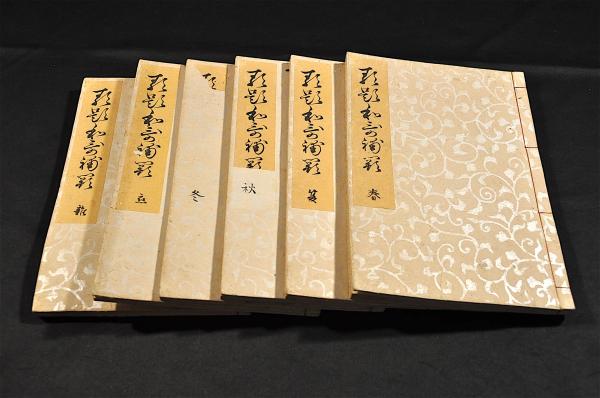 類題和哥補闕
春
類題和哥補闕
夏
類題和哥補闕
秋
類
冬
類題和哥補闕
恋
類題和哥補闕
雑